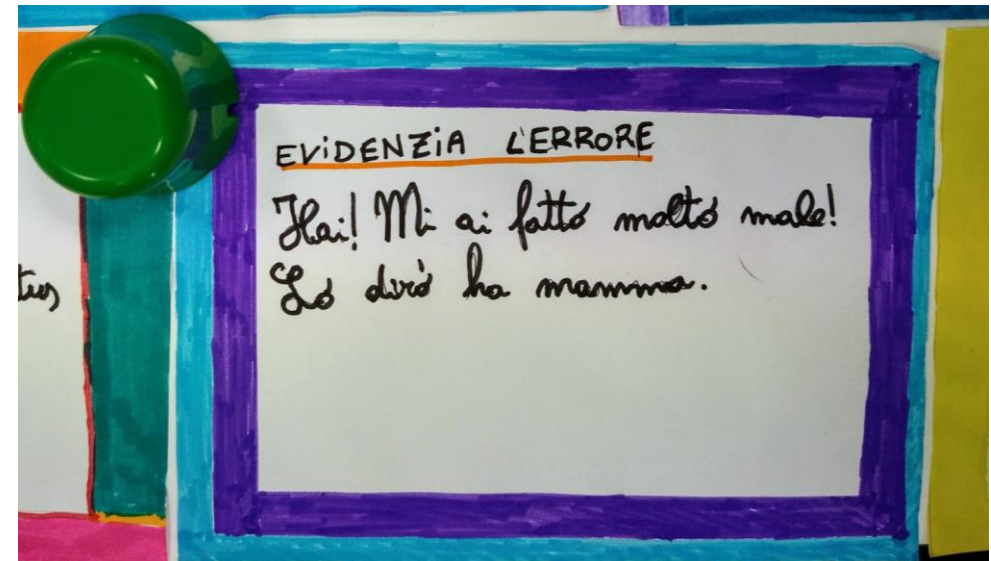 EViDENZiA L'ERRORE
Hai! Mi ai fatto molto male!
Lo dirò ha mamma.